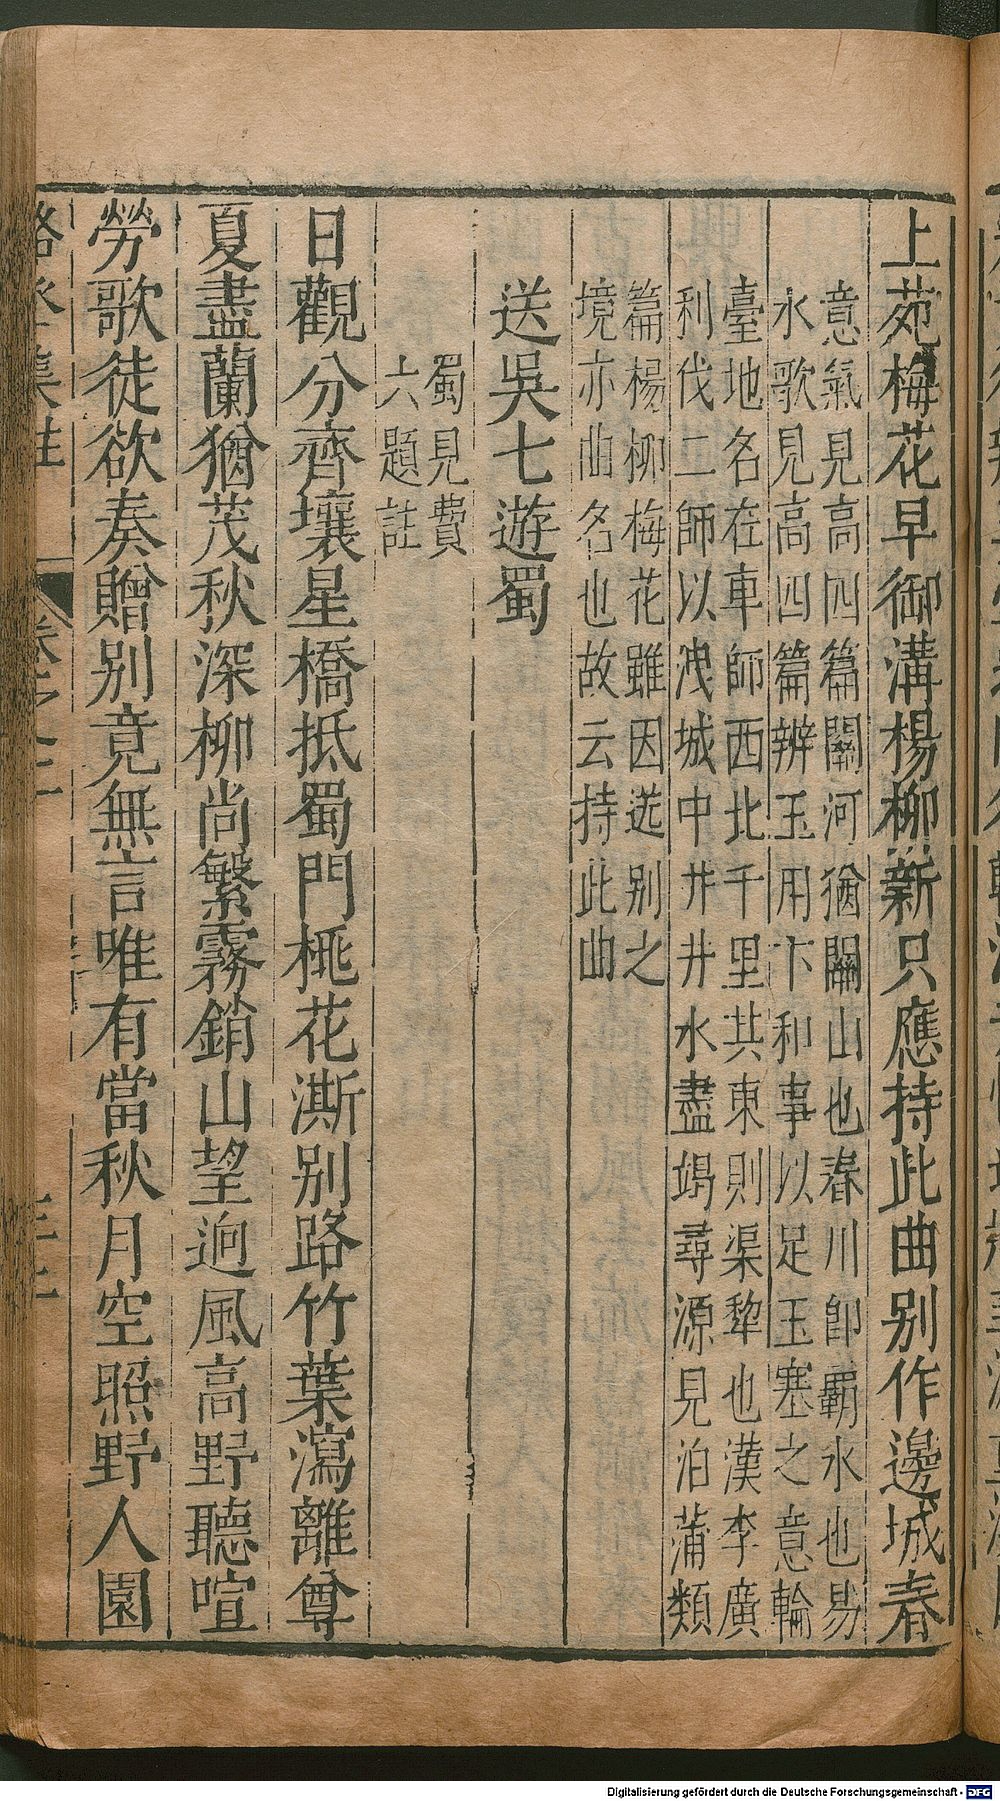 上苑梅花早御溝楊柳新只應持此曲别作邊城春
意氣見高四篇關河猶關山也春川卽覇水也易
水歌見高四篇辨玉用卞和事以足玉塞之意輪
臺地名在車師西北千里共東則渠犂也漢李廣
利伐二師以洩城中井井水盡竭尋源見泊蒲類
篇楊柳梅花雖因送别之
境亦曲名也故云持此曲
送吳七遊蜀
蜀見費
六題註
日觀分齊壤星橋抵蜀門桃花澌别路竹葉瀉離尊
夏盡蘭猶茂秋深柳尚繁霧銷山望迥風高野聽喧
勞歌徒欲奏贈别竟無言唯有當秋月空照野人園
Digitalisierung gefördert durch die Deutsche Forschungsgemeinschaft - DFG